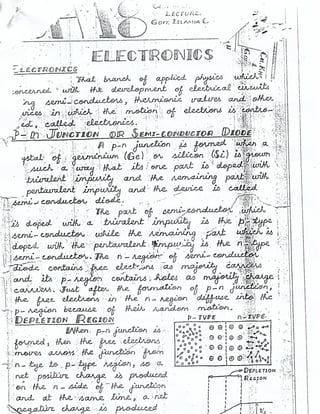 A 18
LECTURE.
GOVT. ISLAMIA C.
ELECTRONICS
ELECTRONICS
That branch of applied physics which
concerned with the development of electrical circuits
ing semi-conductors, thermionic valves and other
vices in which the motion of electrons is contro-
ed, called electronics.
P-N JUNCTION OR SEMI-CONDUCTOR DIODE
A p-n junction is formed when a
ystal of germinium (Ge) or silicon (Si) is grown
such a way that its one part is doped with
trivalent impurity and the remaining part with
pentavalent impurity and the device is called
semi-conductor diode.
The part of semi-conductor which
is doped with a trivalent impurity is the p-type
semi-conductor while the remaining part which is
doped with the pentavalent impurity is the n-type
semi-conductor. The n-region of semi-conductor
diode contains free electrons as majority carriers
and its p-region contains holes as majority charge
carriers. Just after the formation of p-n junction,
the free electrons in the n-region diffuse into the
p-region because of their random motion.
DEPLETION REGION
P-TYPE N-TYPE
When p-n junction is
formed, then the free electrons
moves across the junction from
n-tye to p-type region, so a
net positive charge is produced
on the n-side of the junction
and at the same time, a net
negative charge is produced
DEPLETION
REGION